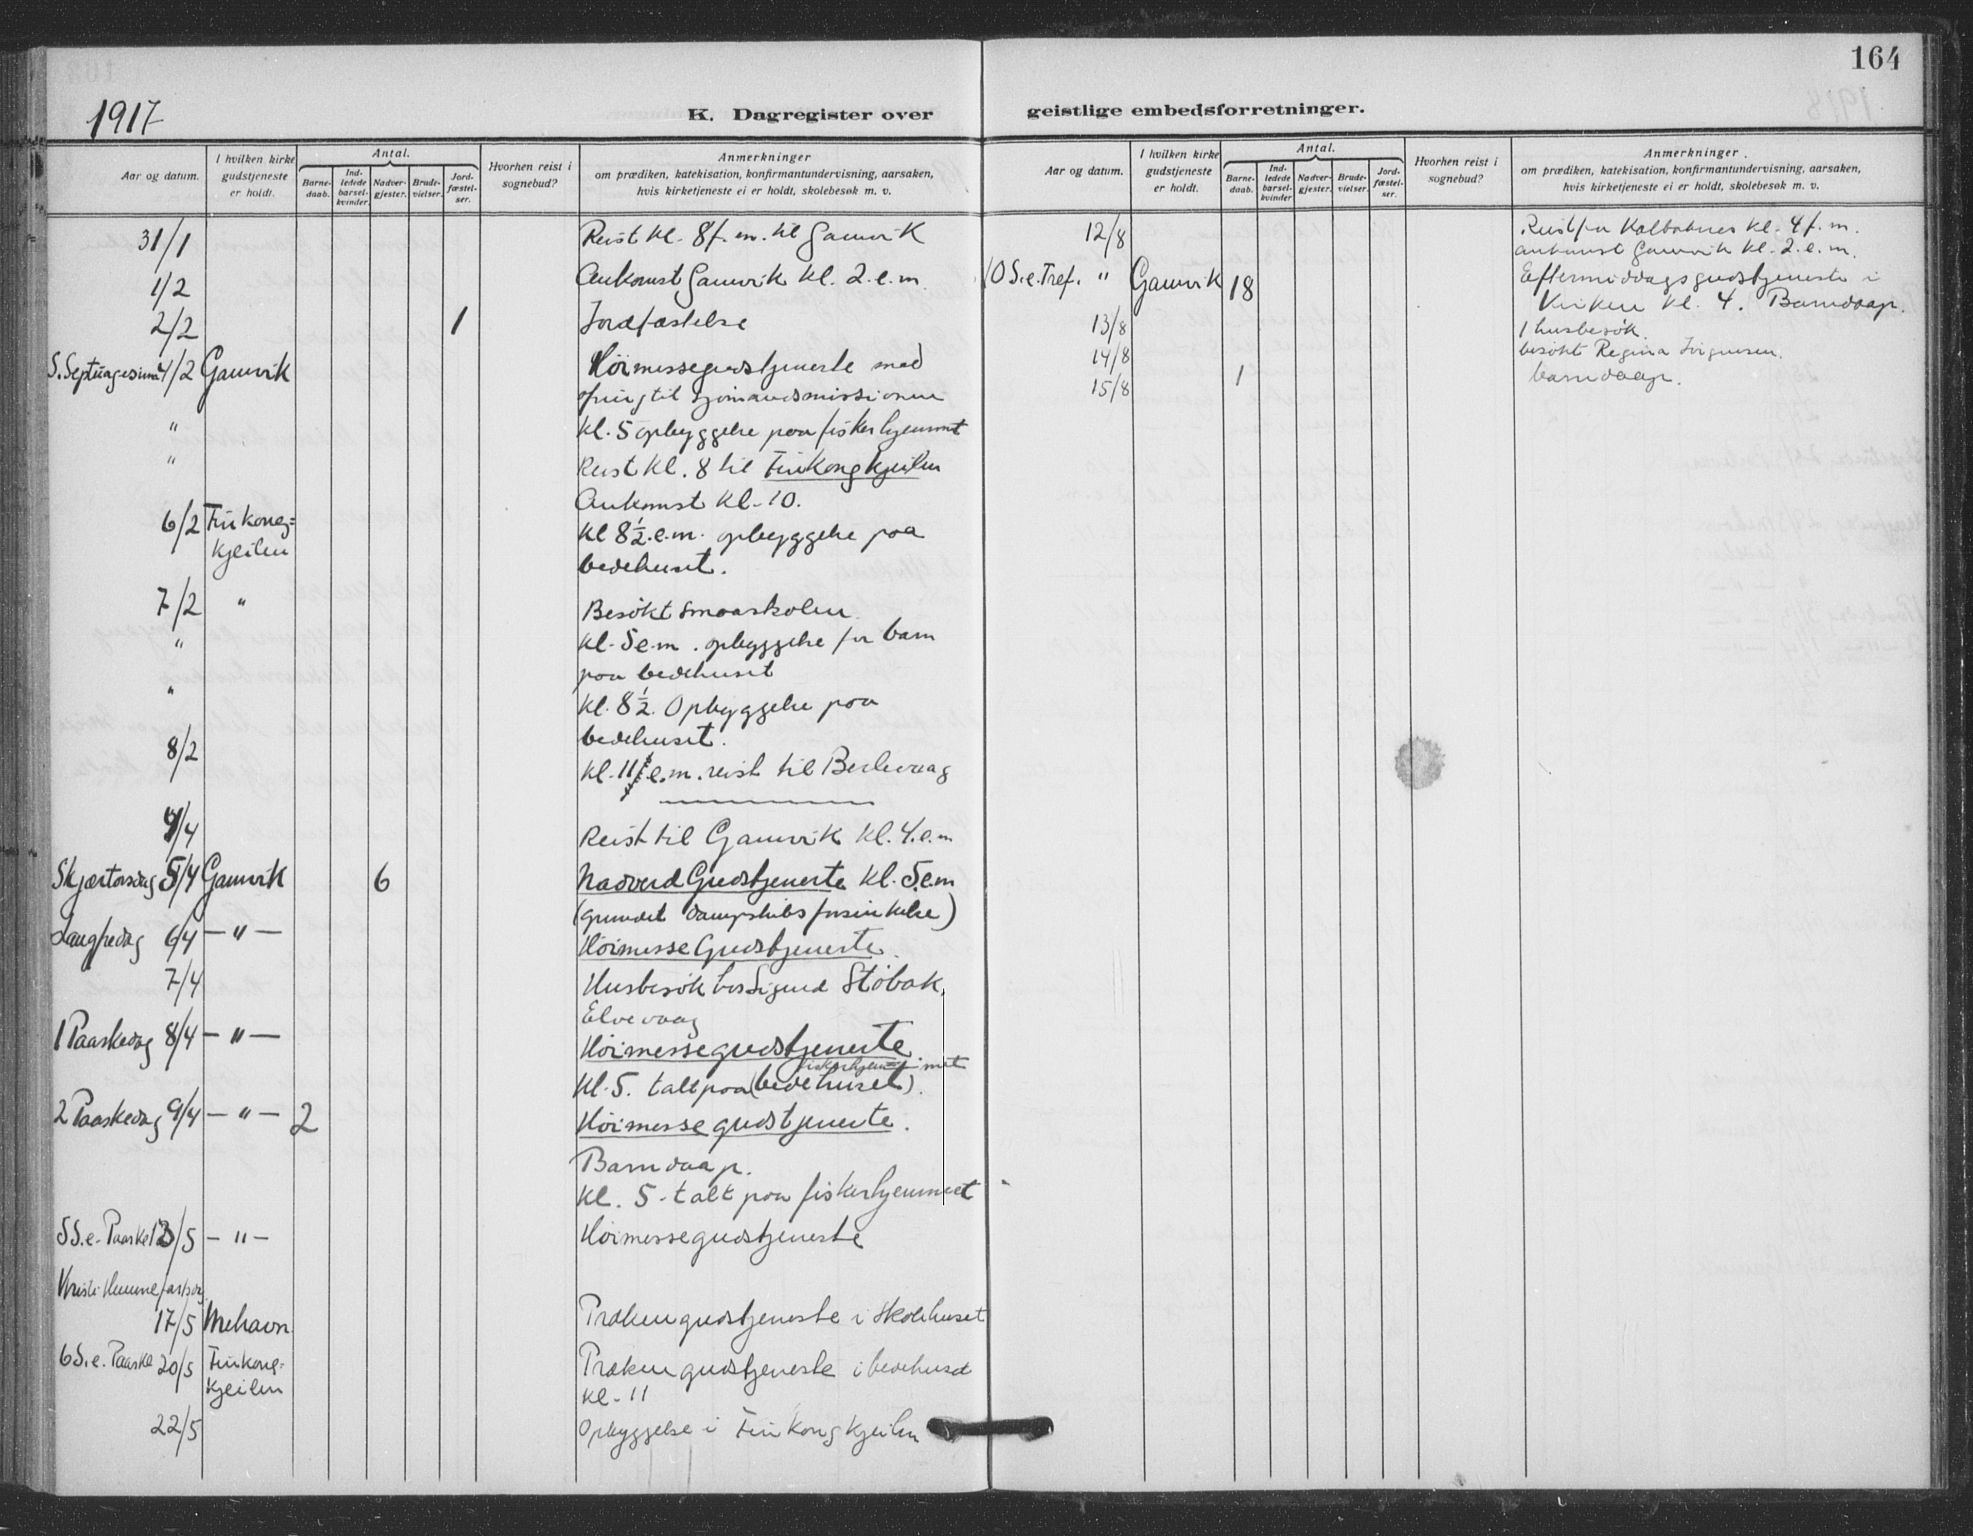 164
1917
K. Dagregister over geistlige embedsforretninger.
Aar og datum.
I hvilken kirke gudstjeneste er holdt.
Antal.
Barne-daab.
Ind-ledede barsel-kvinder.
Nadver-gjester.
Brude-vielser.
Jord-fæstel-ser.
Hvorhen reist i sognebud?
Anmerkninger
om prædiken, katekisation, konfirmantundervisning, aarsaken,
hvis kirketjeneste ei er holdt, skolebesøk m. v.
31/1 Reist kl. 8 f.m. til Gamvik
1/2 Ankomst Gamvik kl. 2.e.m.
2/2 1 Jordfæstelse
S.Septuagesima 4/2 Gamvik Höimessegudstjeneste med
til sjömandsmissionen
" kl. 5 opbyggelse paa fiskerhjemmet
" Reist kl. 8 til Finkongkjeilen
Ankomst kl. 10.
6/2 Finkong= kl 8½ e.m. opbyggelse paa
kjeilen bedehuset.
7/2 " Besökt smaaskolen
" kl. 5 e.m. opbyggelse for barn
paa bedehuset
" kl. 8½. Opbyggelse paa
bedehuset.
8/2 kl. 11 e.m. reist til Berlevaag
4/4 Reist til Gamvik kl. 4.e.m
Skjærtorsdag 5/4 Gamvik 6 Nadverd Gudstjeneste kl. 5.em
(grundet dampskibs forsinkelse)
Langfredag 6/4 — " — Höimesse Gudstjeneste.
7/4 Husbesök hos Sigurd Stöbak,
Elvevaag
1 Paaskedag 8/4 — " — Höimessegudstjeneste.
fiskerhjemmet
kl. 5. talt paa (bedehuset).
2 Paaskedag 9/4 — " — 2 Höimessegudstjeneste.
Barndaap.
kl. 5 - talt paa fiskerhjemmet
5 S.e. Paaske 13/5 — " — Höimessegudstjeneste
Kristi Himmelfartsdag
17/5 Mehavn Prækengudstjeneste i skolehuset
6 S.e. Paaske 20/5 Finkong= Prækengudstjeneste i bedehuset
kjeilen kl. 11
22/5 Opbyggelse i Finkongkjeilen
Aar og datum.
I hvilken kirke gudstjeneste er holdt.
Antal.
Barne-daab.
Ind-ledede barsel-kvinder.
Nadver-gjester.
Brude-vielser.
Jord-fæstel-ser.
Hvorhen reist i sognebud?
Anmerkninger.
om prædiken, katekisation, konfirmantundervisning, aarsaken,
hvis kirketjeneste ei er holdt, skolebesøk m. v.
12/8 Reist fra Kalbaknes kl. 4 f.m.
ankomst Gamvik kl. 2.e.m.
10 S.e.Tref. " Gamvik 18 Eftermiddagsgudstjeneste i
Kirken kl. 4. Barndaap.
13/8 1 husbesök.
14/8 besökt Regina Jörgensen.
15/8 1 barndaap.